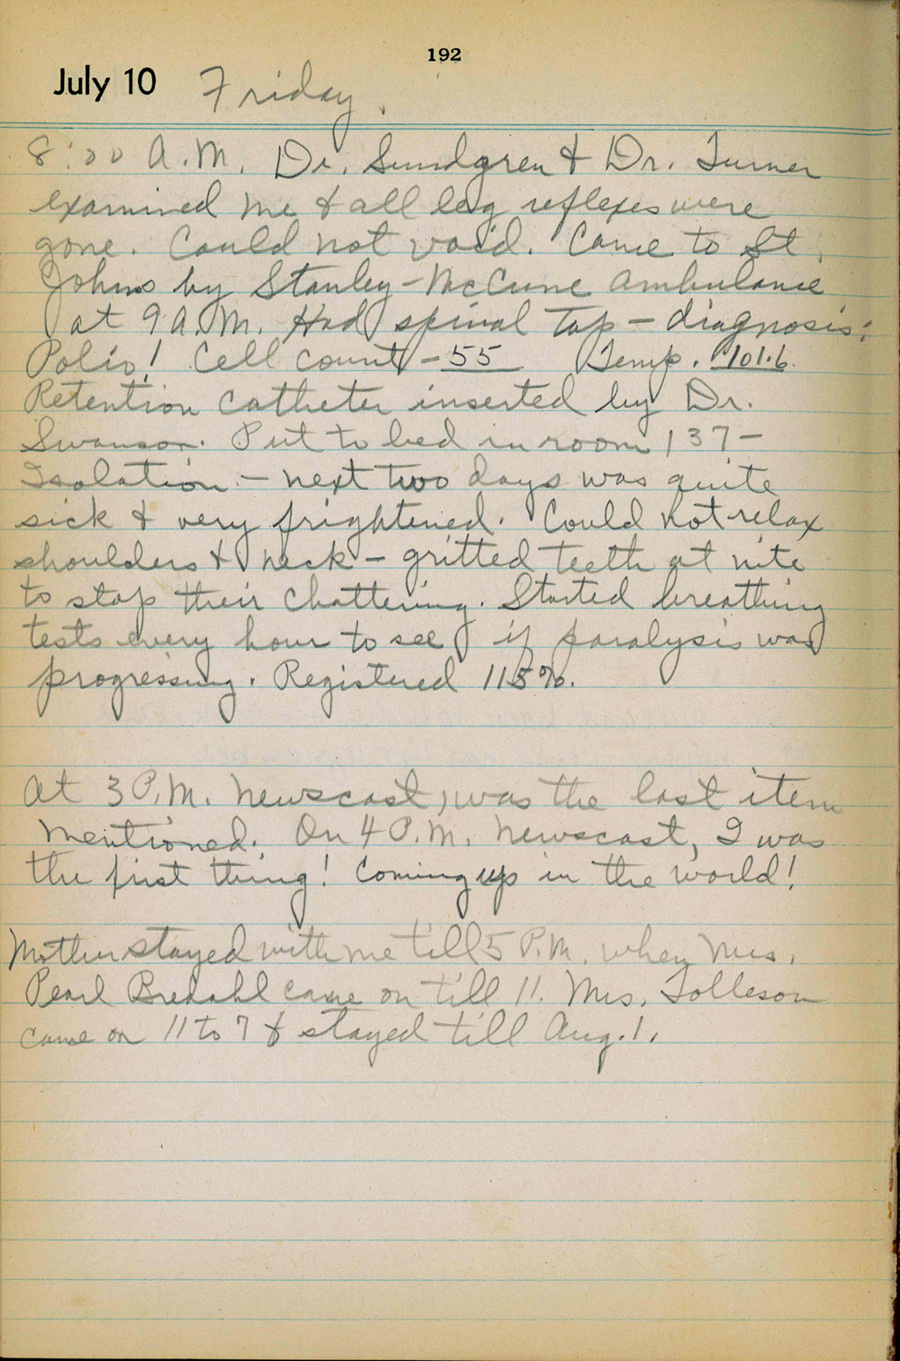 192
July 10 Friday.
8:00 A.M. Dr. Sundgren & Dr. Turner
examined me & all leg reflexes were
gone. Could not void. Came to St.
Johns by Stanley-McCune ambulance
at 9 A.M. Had spinal tap - diagnosis:
Polio! Cell count - 55 Temp. 101.6
Retention catheter inserted by Dr.
Swanson. Put to bed in room 137-
Isolation - next two days was quite
sick & very frightened. Could not relax
shoulders & neck - gritted teeth at nite
to stop their chattering. Started breathing
tests every hour to see if paralysis was
progressing. Registered 115%.
At 3 P.M. newscast, was the last item
mentioned. On 4 P.M. newscast, I was
the first thing! Coming up in the world!
Mother stayed with me till 5 P.M. when Mrs.
Pearl Bredahl came on till 11. Mrs. Tolleson
came on 11 to 7 & stayed till Aug. 1.